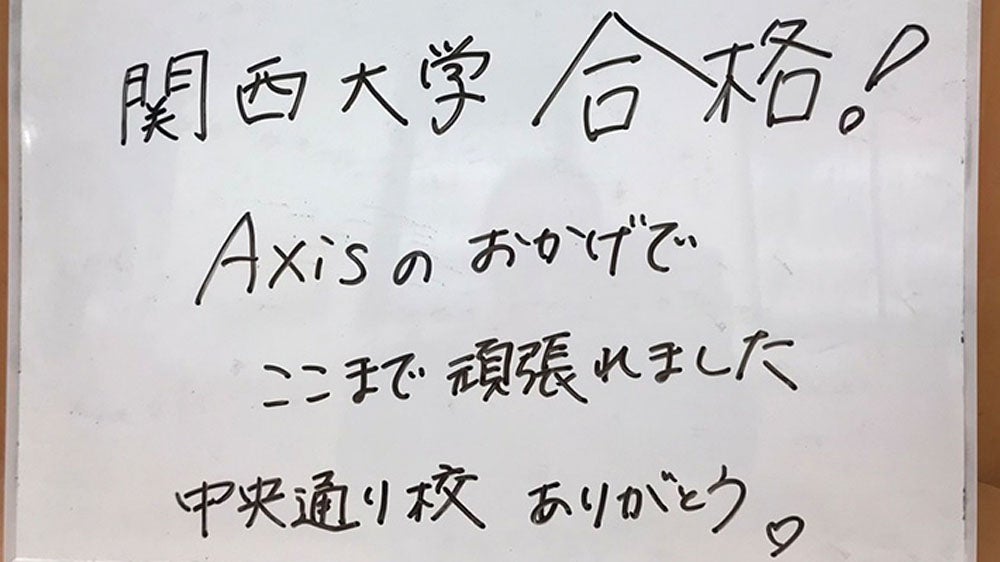 関西大学 合格!
Axisのおかげで
ここまで頑張れました
中央通り校 ありがとう♡